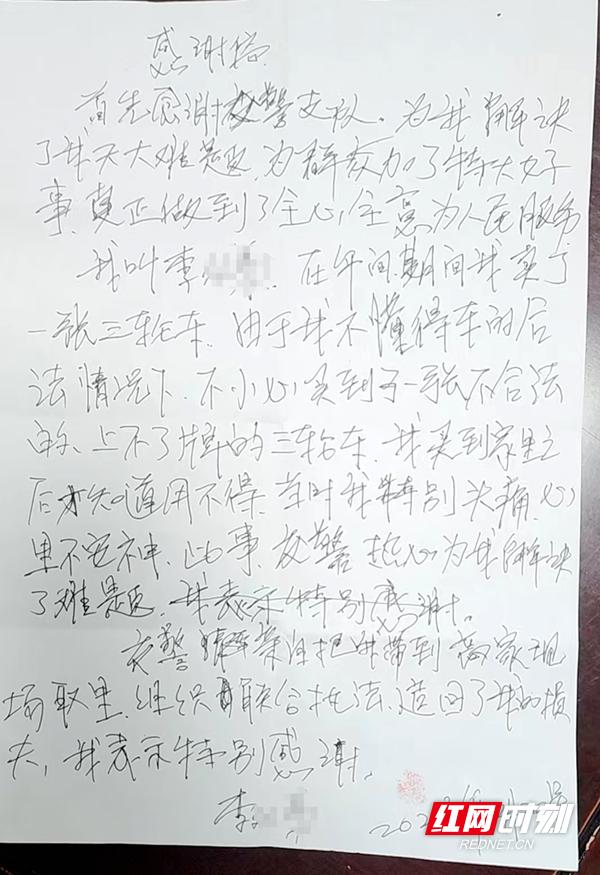 感谢信
首先感谢交警支队。为我解决
了我天大难题,为群众加了特大好
事,真正做到了全心,全意为人民服务
我叫李 在午间期间我卖了
一张三轮车,由于我不懂得车的合
法情况下,不小心买到了一张不合法
的、上不了牌的三轮车,我买到家里之
后才知道用不得,当时我特别头痛,心
里不 神,此事,交警热心为我解决
了难题,我表示特别感谢。
交警 亲自把我带到商家现
场 里,组织 联合执法,追回了我的损
失,我表示特别感谢。
李
202
红网时刻
REDNET.CN